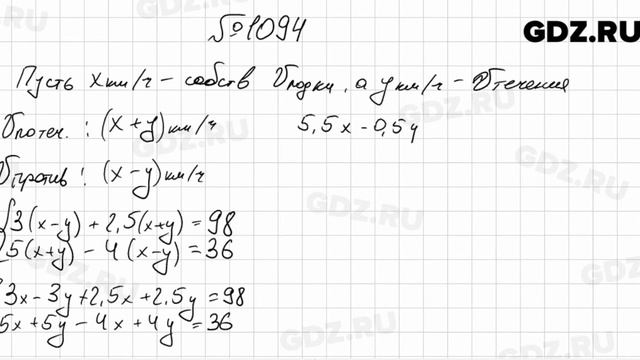 №1094
GDZ.RU
Пусть x км/ч – собств Vлодки, а y км/ч – Vтечения
Vпотеч. : (x+y) км/ч
5,5x – 0,5y
Vпротив : (x–y) км/ч
{3(x–y) + 2,5(x+y) = 98
5(x+y) – 4(x–y) = 36
{3x–3y+2,5x+2,5y=98
5x+5y–4x+4y=36